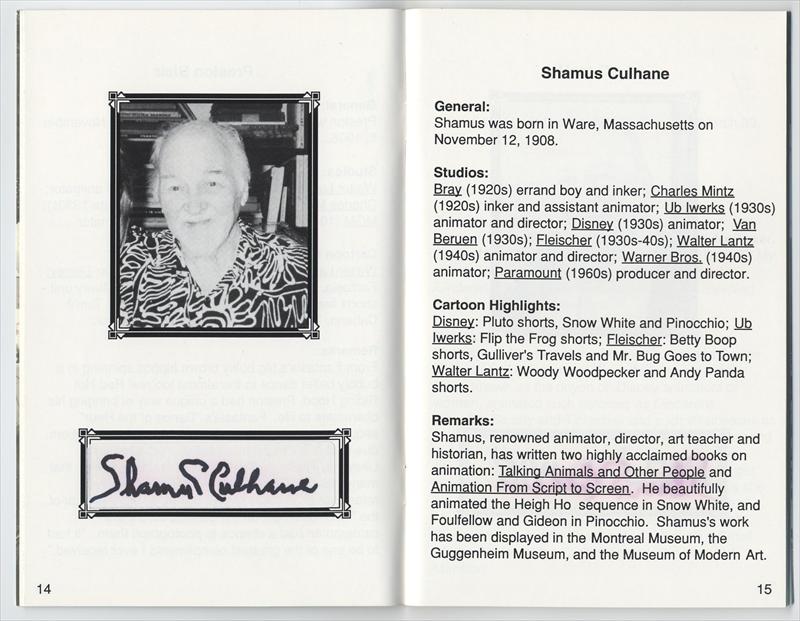 Shamus Culhane
14
Shamus Culhane
General:
Shamus was born in Ware, Massachusetts on
November 12, 1908.
Studios:
Bray (1920s) errand boy and inker; Charles Mintz
(1920s) inker and assistant animator; Ub Iwerks (1930s)
animator and director; Disney (1930s) animator; Van
Beruen (1930s); Fleischer (1930s-40s); Walter Lantz
(1940s) animator and director; Warner Bros. (1940s)
animator; Paramount (1960s) producer and director.
Cartoon Highlights:
Disney: Pluto shorts, Snow White and Pinocchio; Ub
Iwerks: Flip the Frog shorts; Fleischer: Betty Boop
shorts, Gulliver's Travels and Mr. Bug Goes to Town;
Walter Lantz: Woody Woodpecker and Andy Panda
shorts.
Remarks:
Shamus, renowned animator, director, art teacher and
historian, has written two highly acclaimed books on
animation: Talking Animals and Other People and
Animation From Script to Screen. He beautifully
animated the Heigh Ho sequence in Snow White, and
Foulfellow and Gideon in Pinocchio. Shamus's work
has been displayed in the Montreal Museum, the
Guggenheim Museum, and the Museum of Modern Art.
15